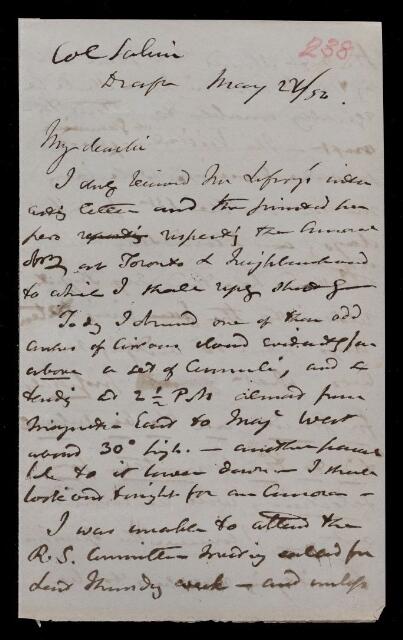 Col Sabine
238
Draft May 24/52.
My dear Sir
I duly received Mr Lefroy's inter
esting Letter and the printed pa
pers respecting the Aurora
at Toronto & Neighbourhood
to which I shall reply shortly
Today I observed one of those odd
arches of Cirrous cloud evidently far
above a set of Cumuli, and ex
tending at 2½ P.M. almost from
Magnetic East to Mag. West
about 30° high. — another paral
lel to it lower down — I shall
look out tonight for an Aurora —
I was unable to attend the
R. S. Committee Meeting called for
last Thursday week — and unless